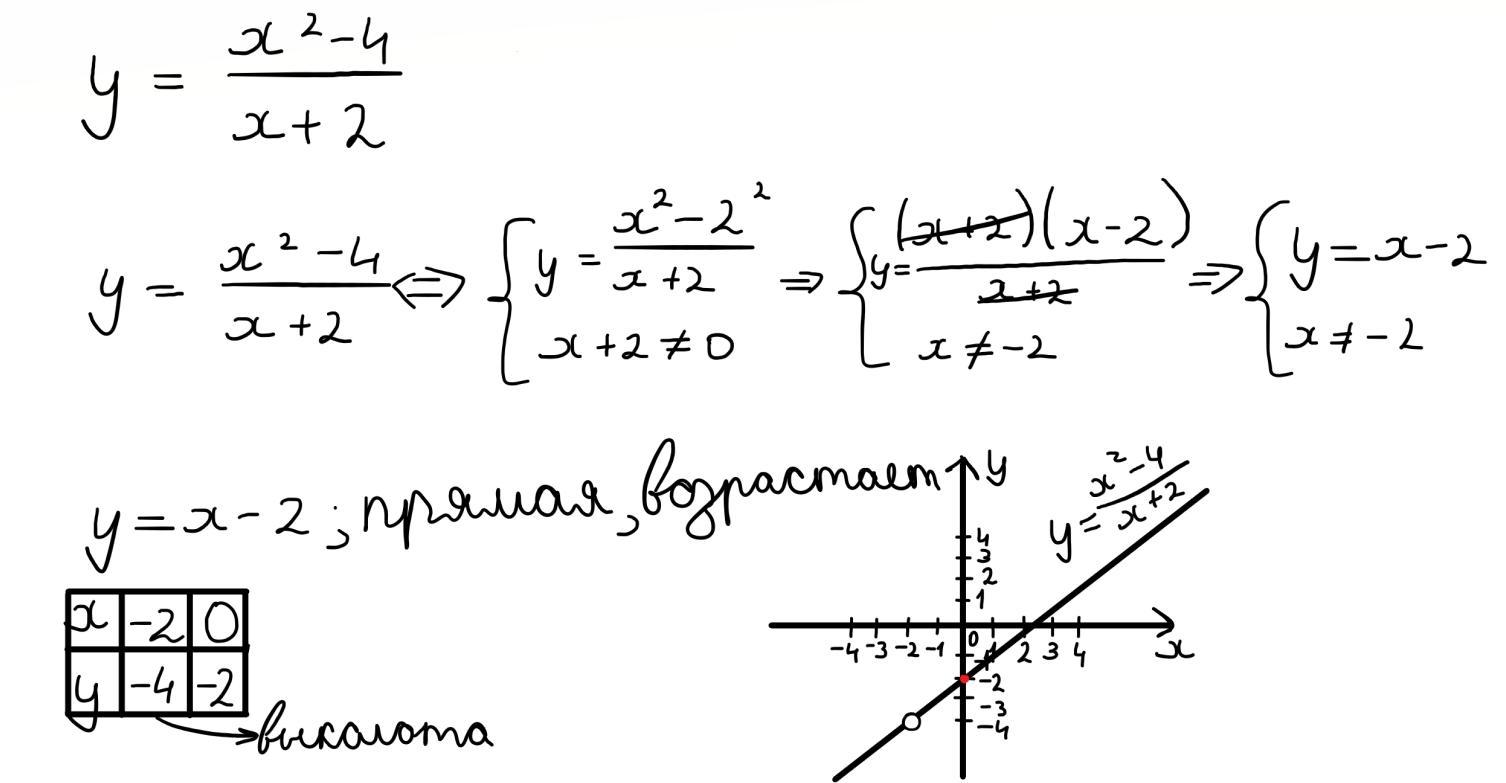 y = (x² - 4)/(x + 2)
y = (x² - 4)/(x + 2) ⇔ { y = (x² - 2²)/(x + 2) ; x + 2 ≠ 0 ⇒ { y = (x+2)(x - 2)/(x+2) ; x ≠ -2 ⇒ { y = x - 2 ; x ≠ -2
y = x - 2 ; прямая, возрастает
x -2 0
y -4 -2
выколота
y
y = (x² - 4)/(x + 2)
4
3
2
1
-4 -3 -2 -1 0 1 2 3 4 x
-1
-2
-3
-4